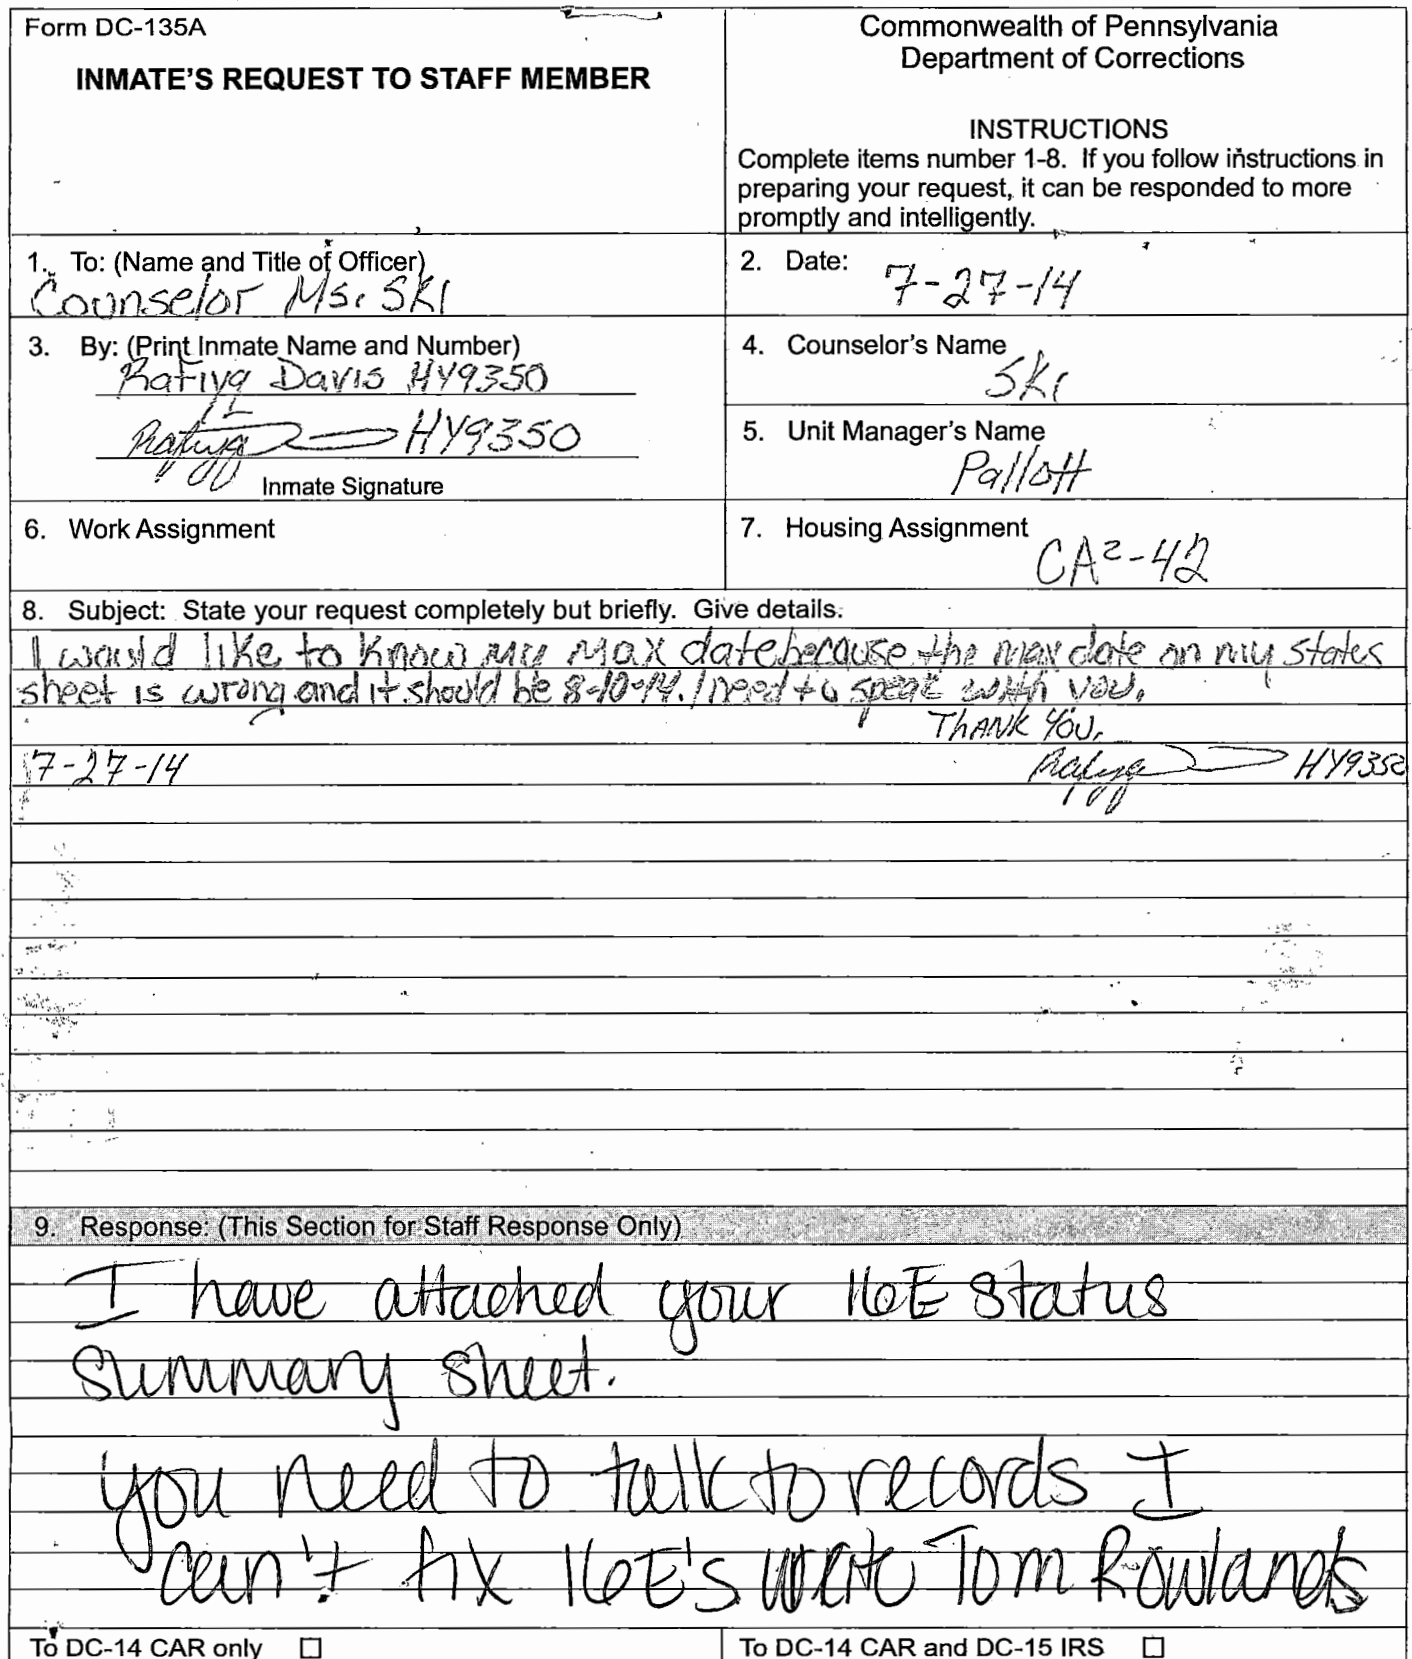 Form DC-135A
INMATE'S REQUEST TO STAFF MEMBER
Commonwealth of Pennsylvania
Department of Corrections
INSTRUCTIONS
Complete items number 1-8. If you follow instructions in
preparing your request, it can be responded to more
promptly and intelligently.
1. To: (Name and Title of Officer)
Counselor Ms. SKI
2. Date:
7-27-14
3. By: (Print Inmate Name and Number)
Rafiyq Davis HY9350
Rafiyq HY9350
Inmate Signature
4. Counselor's Name
SKI
5. Unit Manager's Name
Pallott
6. Work Assignment
7. Housing Assignment
CA2-42
8. Subject: State your request completely but briefly. Give details.
I would like to know my max date because the max date on my states
sheet is wrong and it should be 8-10-14. I need to speak with you.
THANK YOU.
7-27-14
Rafiyq HY9350
9. Response: (This Section for Staff Response Only)
I have attached your 16E status
summary sheet.
you need to talk to records I
can't fix 16E's write Tom Rowlands
To DC-14 CAR only ☐
To DC-14 CAR and DC-15 IRS ☐